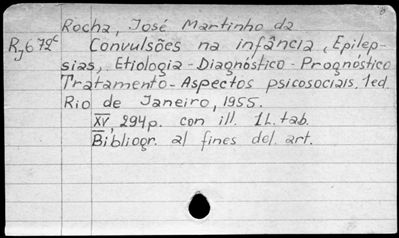 Rocha, José Martinho da
Rj672c Convulsões na infância, Epilep-
sias, Etiologia-Diagnóstico-Prognóstico
Tratamento-Aspectos psicosociais. 1ed.
Rio de Janeiro, 1955.
XV, 294p. con ill. 1L. tab.
Bibliogr. al fines del. art.